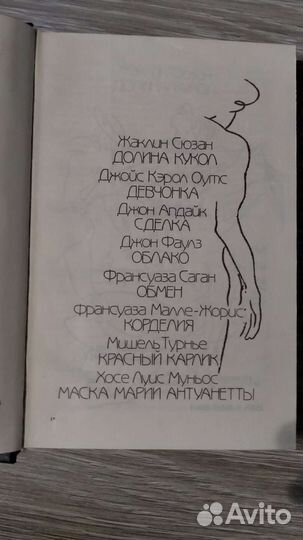 Жаклин Сюзан
ДОЛИНА КУКОЛ
Джойс Кэрол Оутс
ДЕВЧОНКА
Джон Апдайк
СДЕЛКА
Джон Фаулз
ОБЛАКО
Франсуаза Саган
ОБМЕН
Франсуаза Малле-Жорис
КОРДЕЛИЯ
Мишель Турнье
КРАСНЫЙ КАРЛИК
Хосе Луис Муньос
МАСКА МАРИИ АНТУАНЕТТЫ
Avito